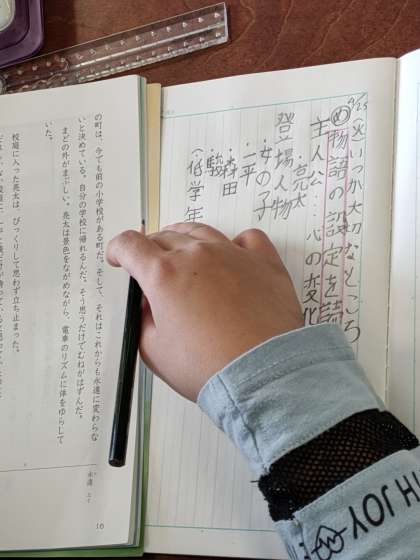 9/25
(火)いつか、大切なところ
め 物語の設定を読
主人公…心の変化
亮太
登場人物
・女の子
・一平
・森田
・駿
(低学年
の町は、今でも旧の小学校がある町だ。そして、それはこれからも永遠に変わらな
いと決めている。自分の学校に帰れるんだ。そう思うだけでむねがはずんだ。
まどの外がまぶしい。亮太は景色をながめながら、電車のリズムに体をゆらして
いた。
校庭に入った亮太は、びっくりして思わず立ち止まった。
永遠 エイ
16
TH JOY